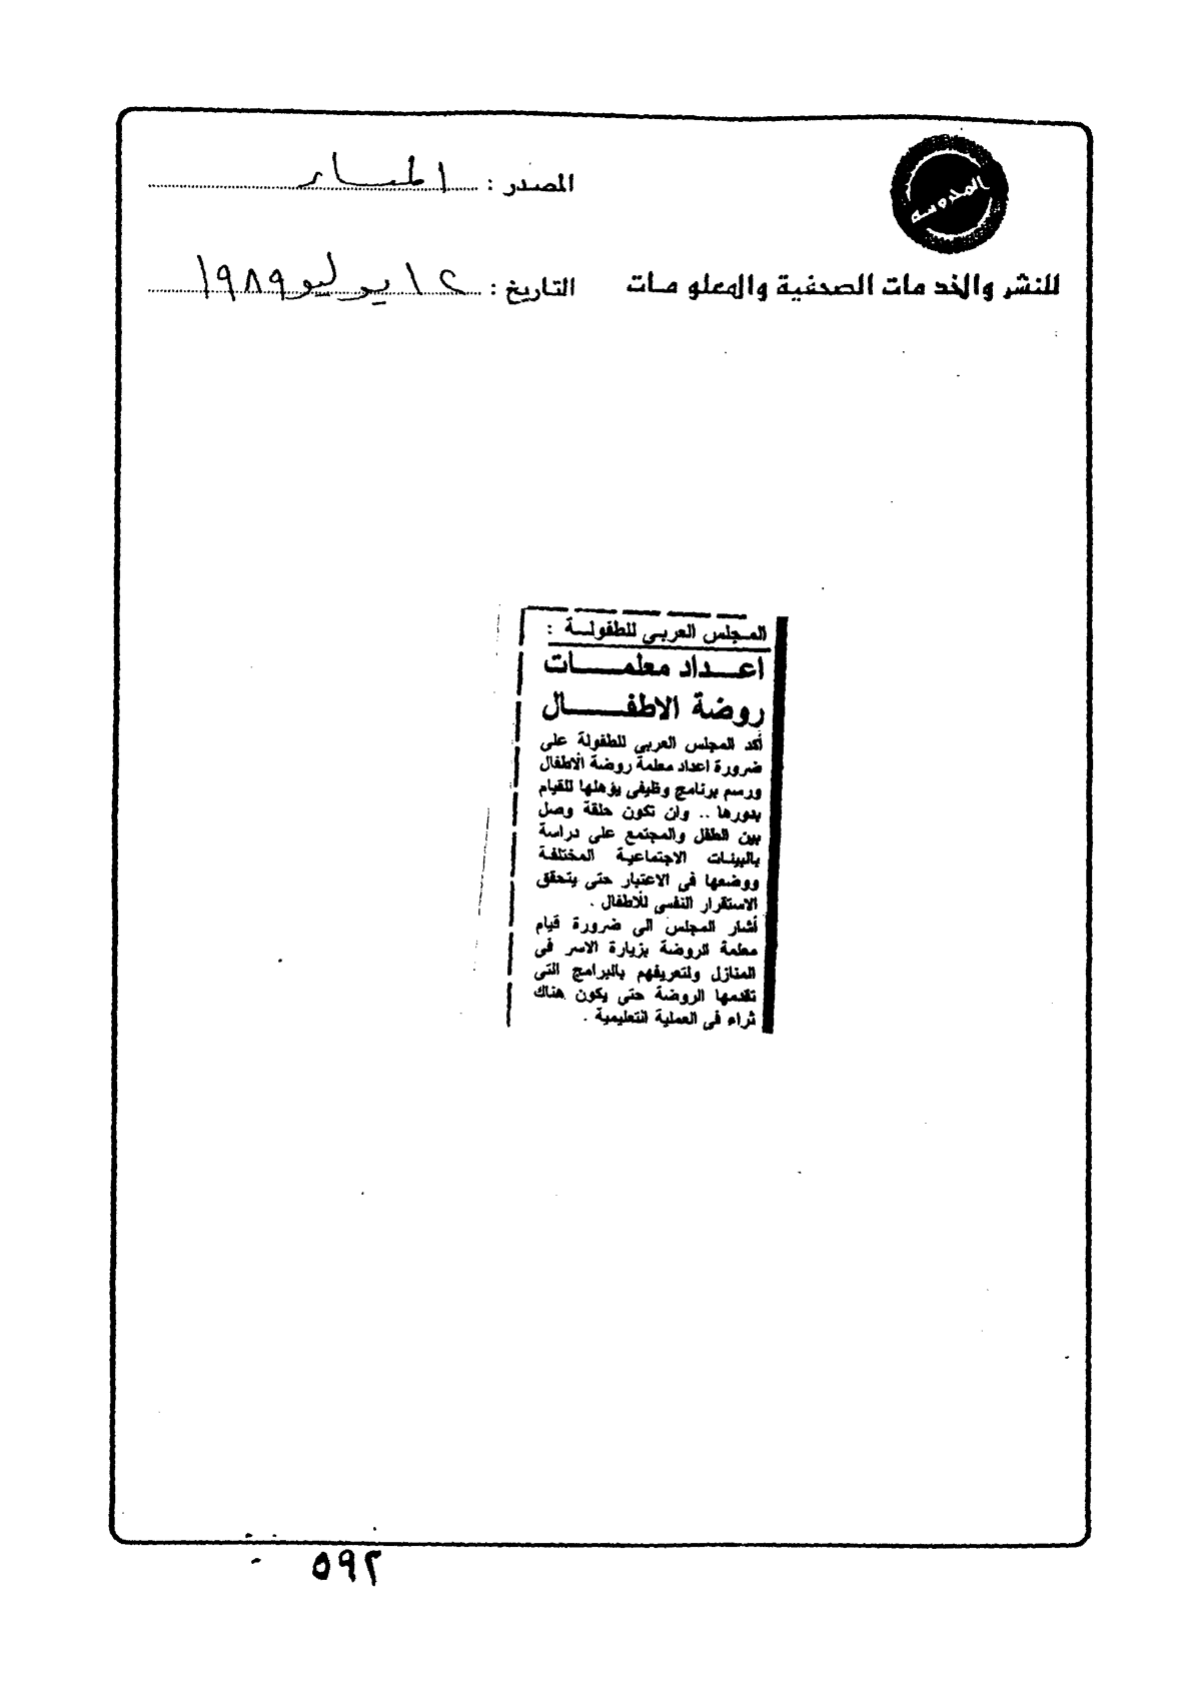 المحروسة
المصدر : المسار
للنشر والخدمات الصحفية والمعلومات
التاريخ : ١٢ يوليو ١٩٨٩
المجلس العربي للطفولة :
اعداد معلمات
روضة الاطفال
أكد المجلس العربي للطفولة على
ضرورة اعداد معلمة روضة الاطفال
ورسم برنامج وظيفى يؤهلها للقيام
بدورها .. وان تكون حلقة وصل
بين الطفل والمجتمع على دراسة
بالبيئات الاجتماعية المختلفة
ووضعها فى الاعتبار حتى يتحقق
الاستقرار النفسى للأطفال .
أشار المجلس الى ضرورة قيام
معلمة الروضة بزيارة الاسر فى
المنازل ولتعريفهم بالبرامج التى
تقدمها الروضة حتى يكون هناك
ثراء فى العملية التعليمية .
٥٩٢